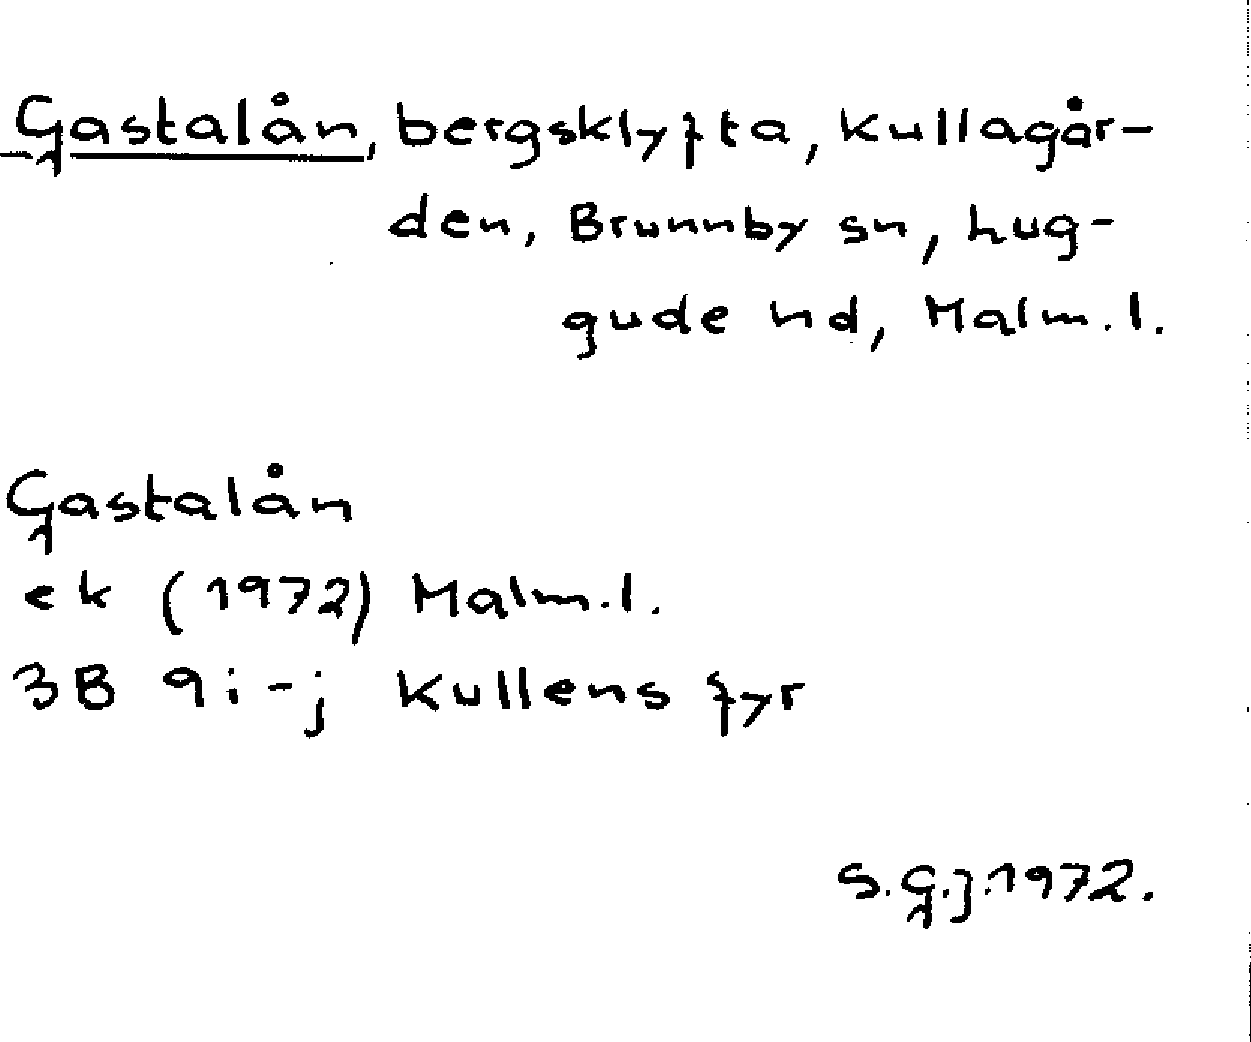 Gastalån, bergsklyfta, Kullagår-
den, Brunnby sn, Lug-
gude hd, Malm.l.
Gastalån
ek (1972) Malm.l.
3B 9i-j Kullens fyr
S.G.J.1972.